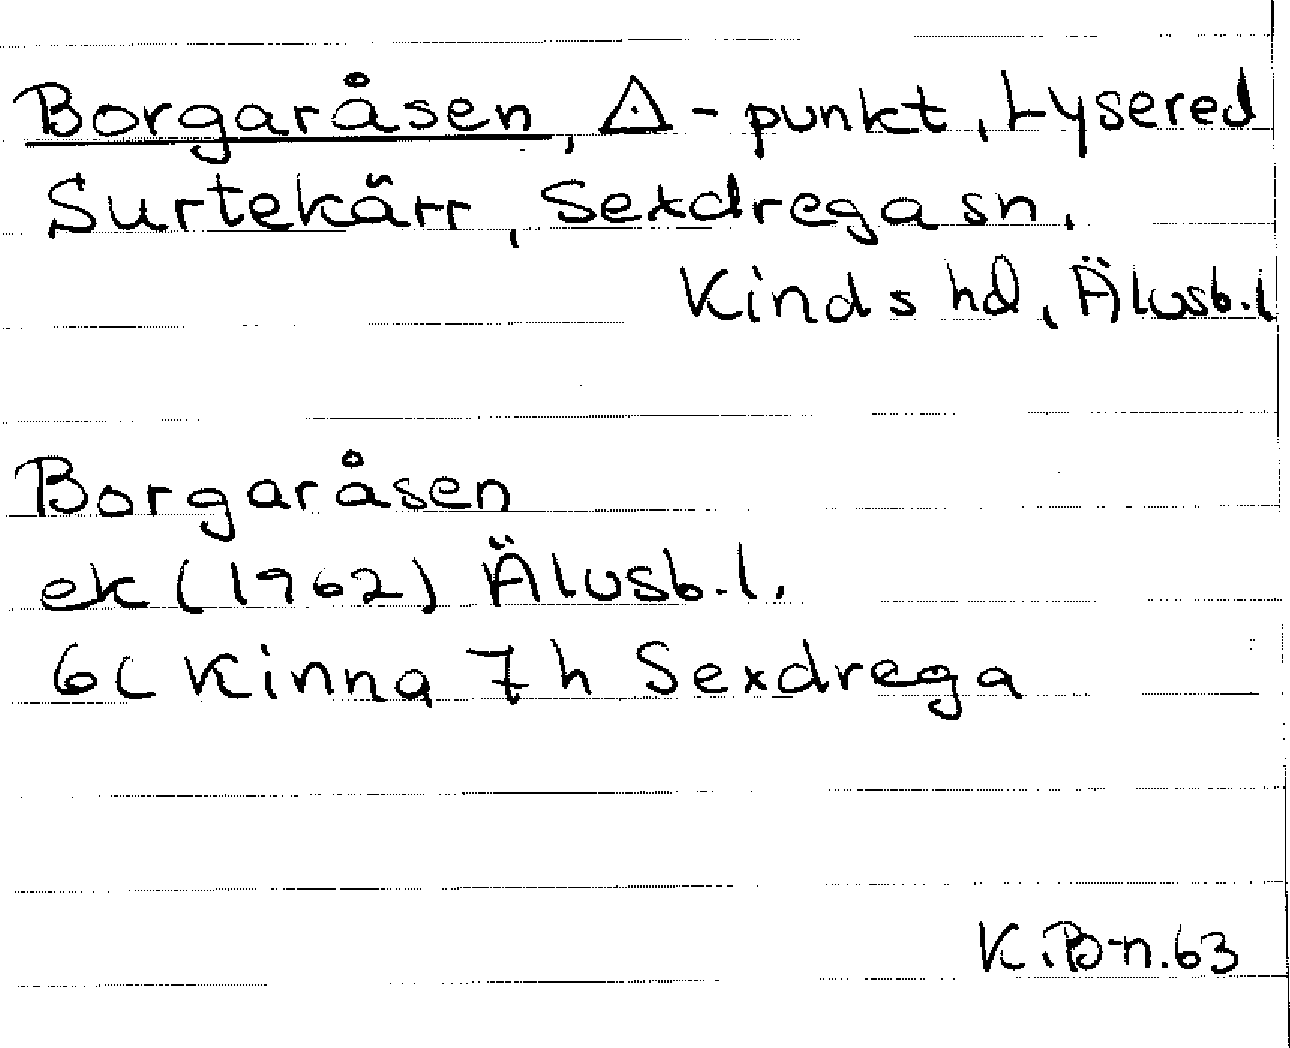 Borgaråsen, △-punkt, Lysered
Surtekärr, Sexdrega sn.
Kinds hd, Älvsb.l
Borgaråsen
ek (1962) Älvsb.l.
6C Kinna 7h Sexdrega
K.B-n.63